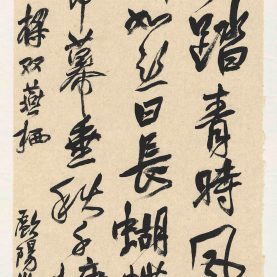 踏青時风
如眉日長蝴蝶
幕垂秋千
樑双燕栖
歐陽